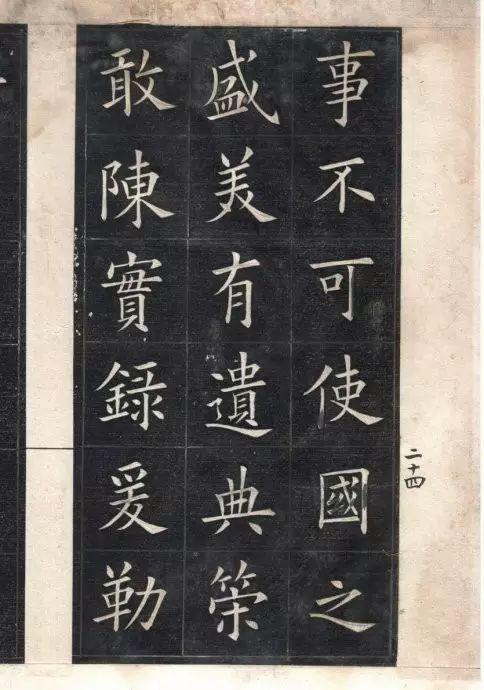 事不可使國之
盛美有遺典策
敢陳實録爰勒
二十四